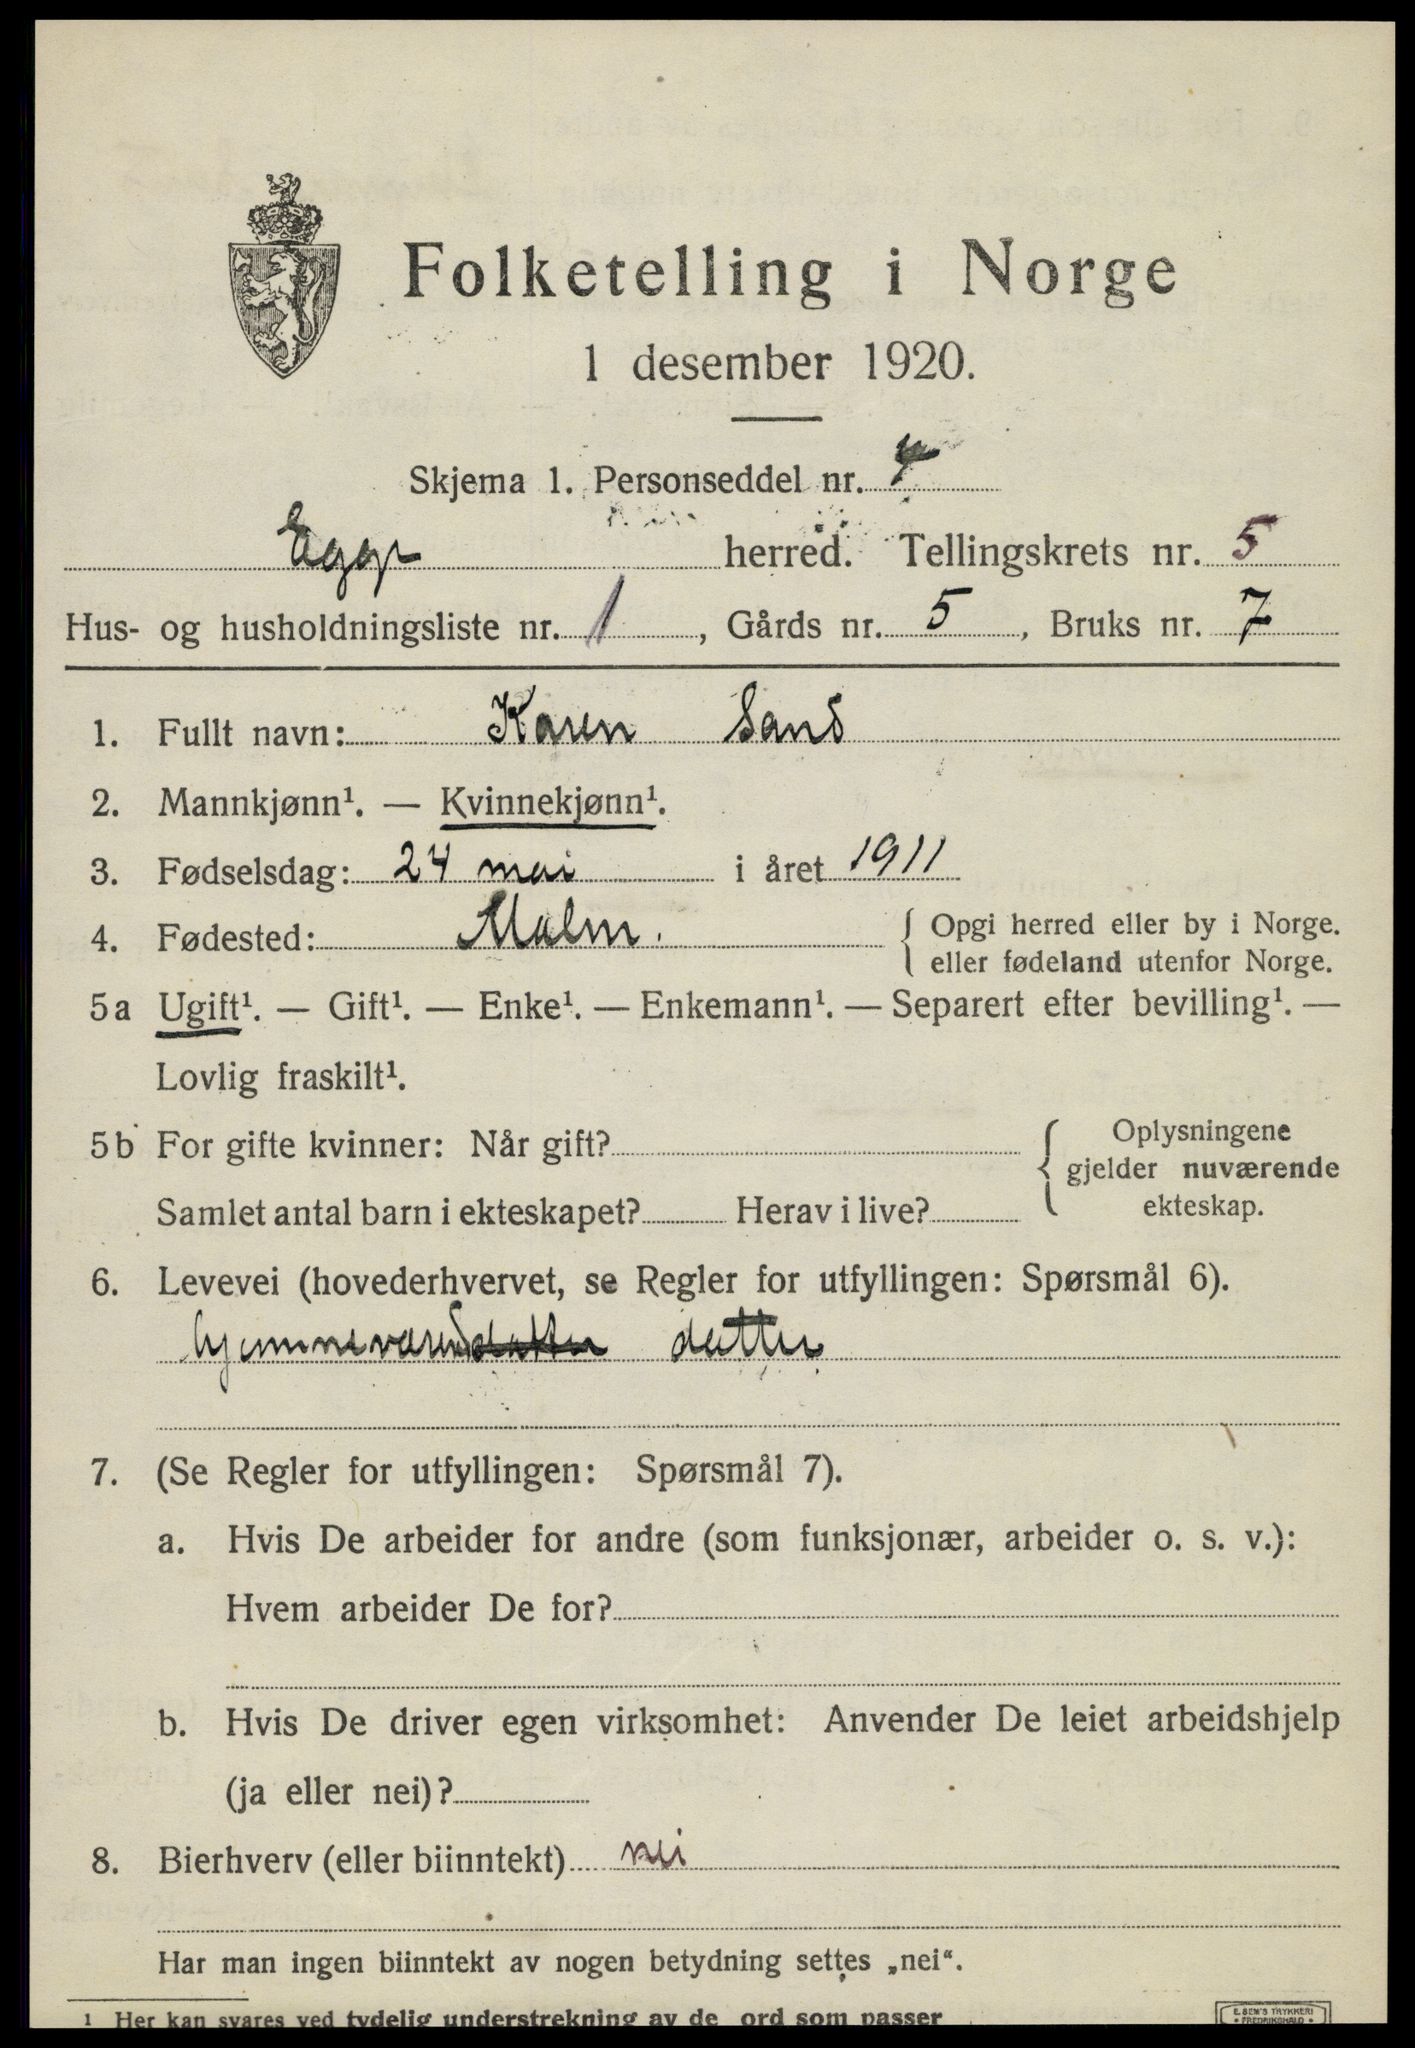 Folketelling i Norge
1 desember 1920.
Skjema 1. Personseddel nr. 4
Egge herred. Tellingskrets nr. 5
Hus- og husholdningsliste nr. 1, Gårds nr. 5, Bruks nr. 7
1. Fullt navn: Karen Sand
2. Mannkjønn¹. — Kvinnekjønn¹.
3. Fødselsdag: 24 mai i året 1911
4. Fødested: Malm. { Opgi herred eller by i Norge.
eller fødeland utenfor Norge.
5a Ugift¹. — Gift¹. — Enke¹. — Enkemann¹. — Separert efter bevilling¹. —
Lovlig fraskilt¹.
5b For gifte kvinner: Når gift? { Oplysningene
gjelder nuværende
Samlet antal barn i ekteskapet? Herav i live?
ekteskap.
6. Levevei (hovederhvervet, se Regler for utfyllingen: Spørsmål 6).
hjemmeværend datter datter
7. (Se Regler for utfyllingen: Spørsmål 7).
a. Hvis De arbeider for andre (som funksjonær, arbeider o. s. v.):
Hvem arbeider De for?
b. Hvis De driver egen virksomhet: Anvender De leiet arbeidshjelp
(ja eller nei)?
8. Bierhverv (eller biinntekt) nei
Har man ingen biinntekt av nogen betydning settes „nei“.
¹ Her kan svares ved tydelig understrekning av de ord som passer
E. SEM'S TRYKKERI
• FREDRIKSHALD •